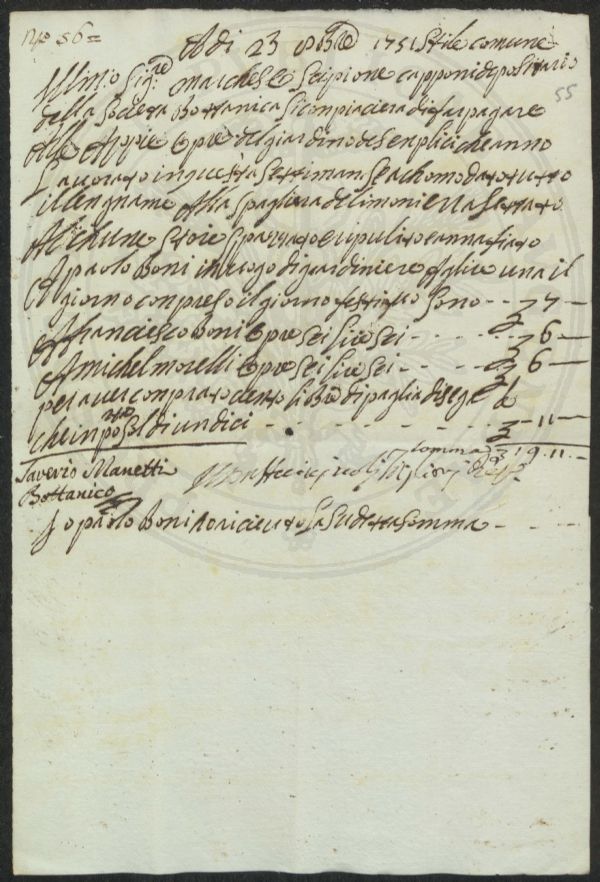 No 56=
A di 23 8bre 1751 Stile comune
55
Ill.mo Sig.re Marchese Scipione Capponi dipositario
della Societa Bottanica Si conpiacera di far pagare
Alle Appie Opre del giardino de Senplici che anno
Lavorato in questa Settimana e achomodato tutto
il legname Alla Spagliera de limoni e Na Serrato
Alchune Stoie Spazzato e ripulito e annafiato
A paolo Boni in luogo di giardiniere A lire una il
giorno conpreso il giorno festivo Sono - - 7 7 —
A francesco Boni Opre Sei lire Sei - - - - 7 6 —
A Michel morelli Opre Sei lire Sei - - - 7 6 —
per aver conprato cento libre di paglia di Segle
che inporto Soldi undici - - - - - - 7 — 11 —
Somma 7 19. 11. —
Saverio Manetti
Bottanico
Io paolo Boni o riceuto La Sudetta Somma - - - -